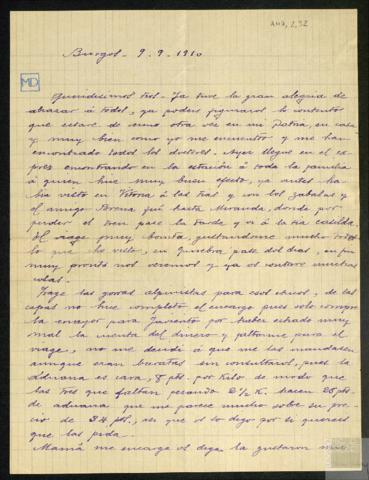 AH2, 2, 32
Burgos - 9-9-1910
MD
Queridísimos tios.- Ya tuve la gran alegria de
abrazar á todos, ya podeis figuraros lo contento
que estare de verme otra vez en mi Patria, en casa
y muy bien como yo me encuentro y me han
encontrado todos los doctores. Ayer llegue en el ex
pres encontrando en la estación á toda la familia
á quien hice muy buen efecto, ya antes ha
bia visto en Vitoria á las tias y á los Zabalas y
el amigo fué hasta Miranda, donde por
perder el tren pase la tarde y vi á la tia Casilda.
El viage muy bonito, gustandome mucho todo
lo que he visto, en Ginebra pase dos dias, en fin
muy pronto nos veremos y ya os contare muchas
cosas.
Traje las gorras alpinistas para esos chicos, de las
capas no hice completo el encargo pues solo compre
la encargo para por haber echado muy
mal la cuenta del dinero y faltarme para el
viage, no me decidi á que me las mandasen
aunque eran baratas sin consultaros, pues la
Aduana es cara, 8 pts. por Kilo de modo que
las tres que faltan pesando 2½ K. hacen 25 pts.
de aduana que me parece mucho sobre su pre
cio de 34 pts., asi que os lo digo por si quereis
que las pida.
Mamá me encarga os diga la gustaron mu